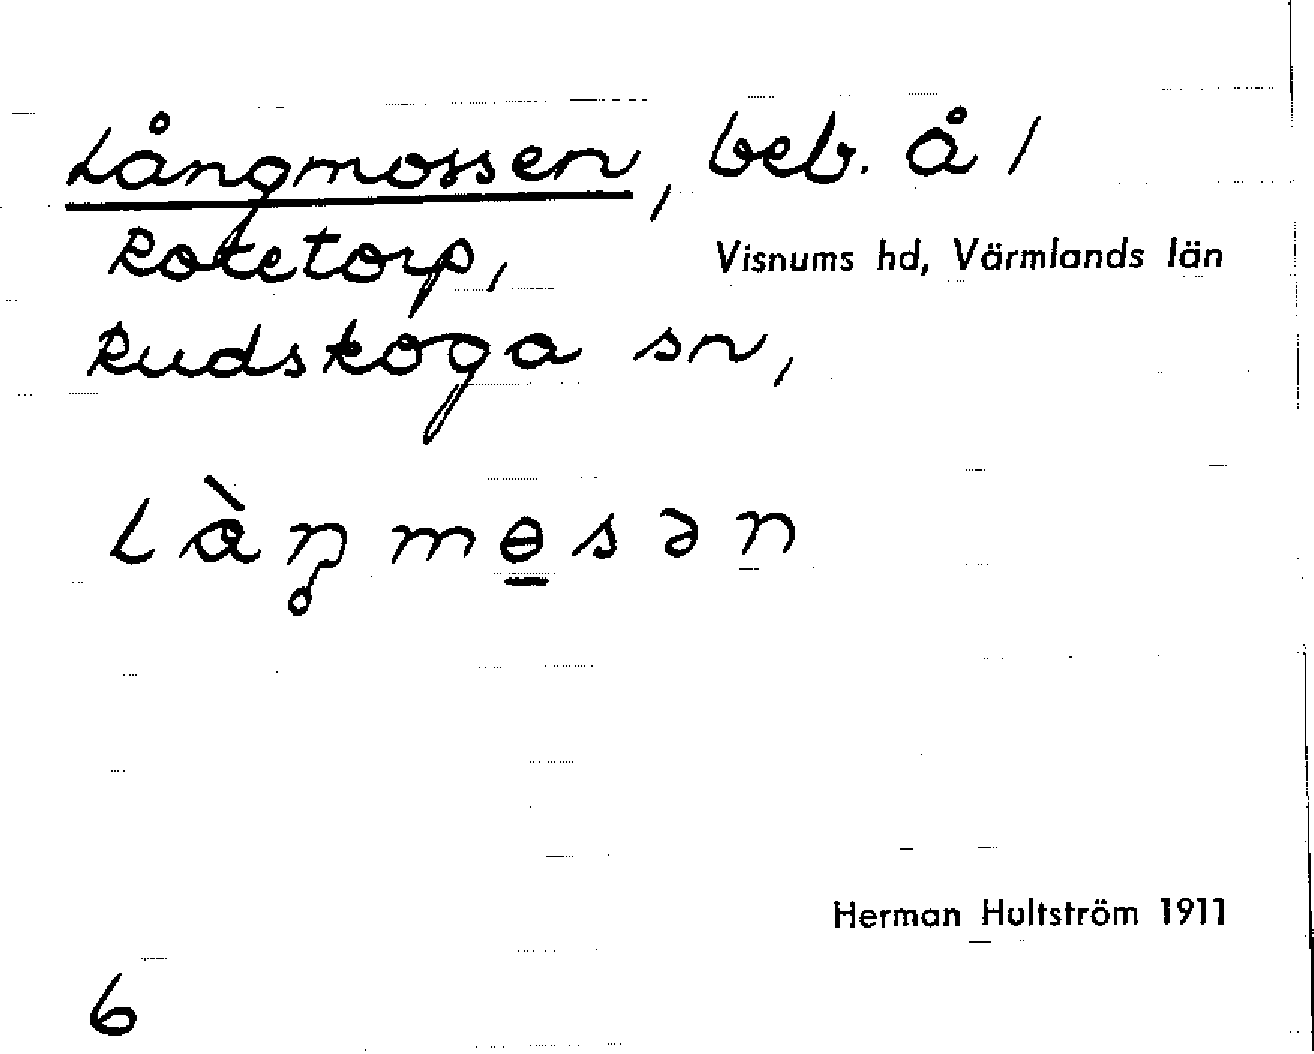 Långmossen, beb. å /
Roketorp, Visnums hd, Värmlands län
Rudskoga sn,
Làŋmɵ̱sən
Herman Hultström 1911
6